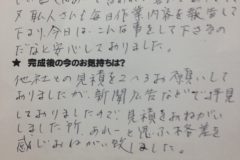 戸私人さんも毎日作業内容を報告して
下より、今日は…こんな事をして下さるの
だなと安心しておりました。
★ 完成後の今のお気持ちは?
他社その見積を2〜3お願いして
ありましたが、新聞広告などで拝見
しておりましたので見積をおねがい
しました所 あれーと思ふ不格差を
感じおねがい致しました。